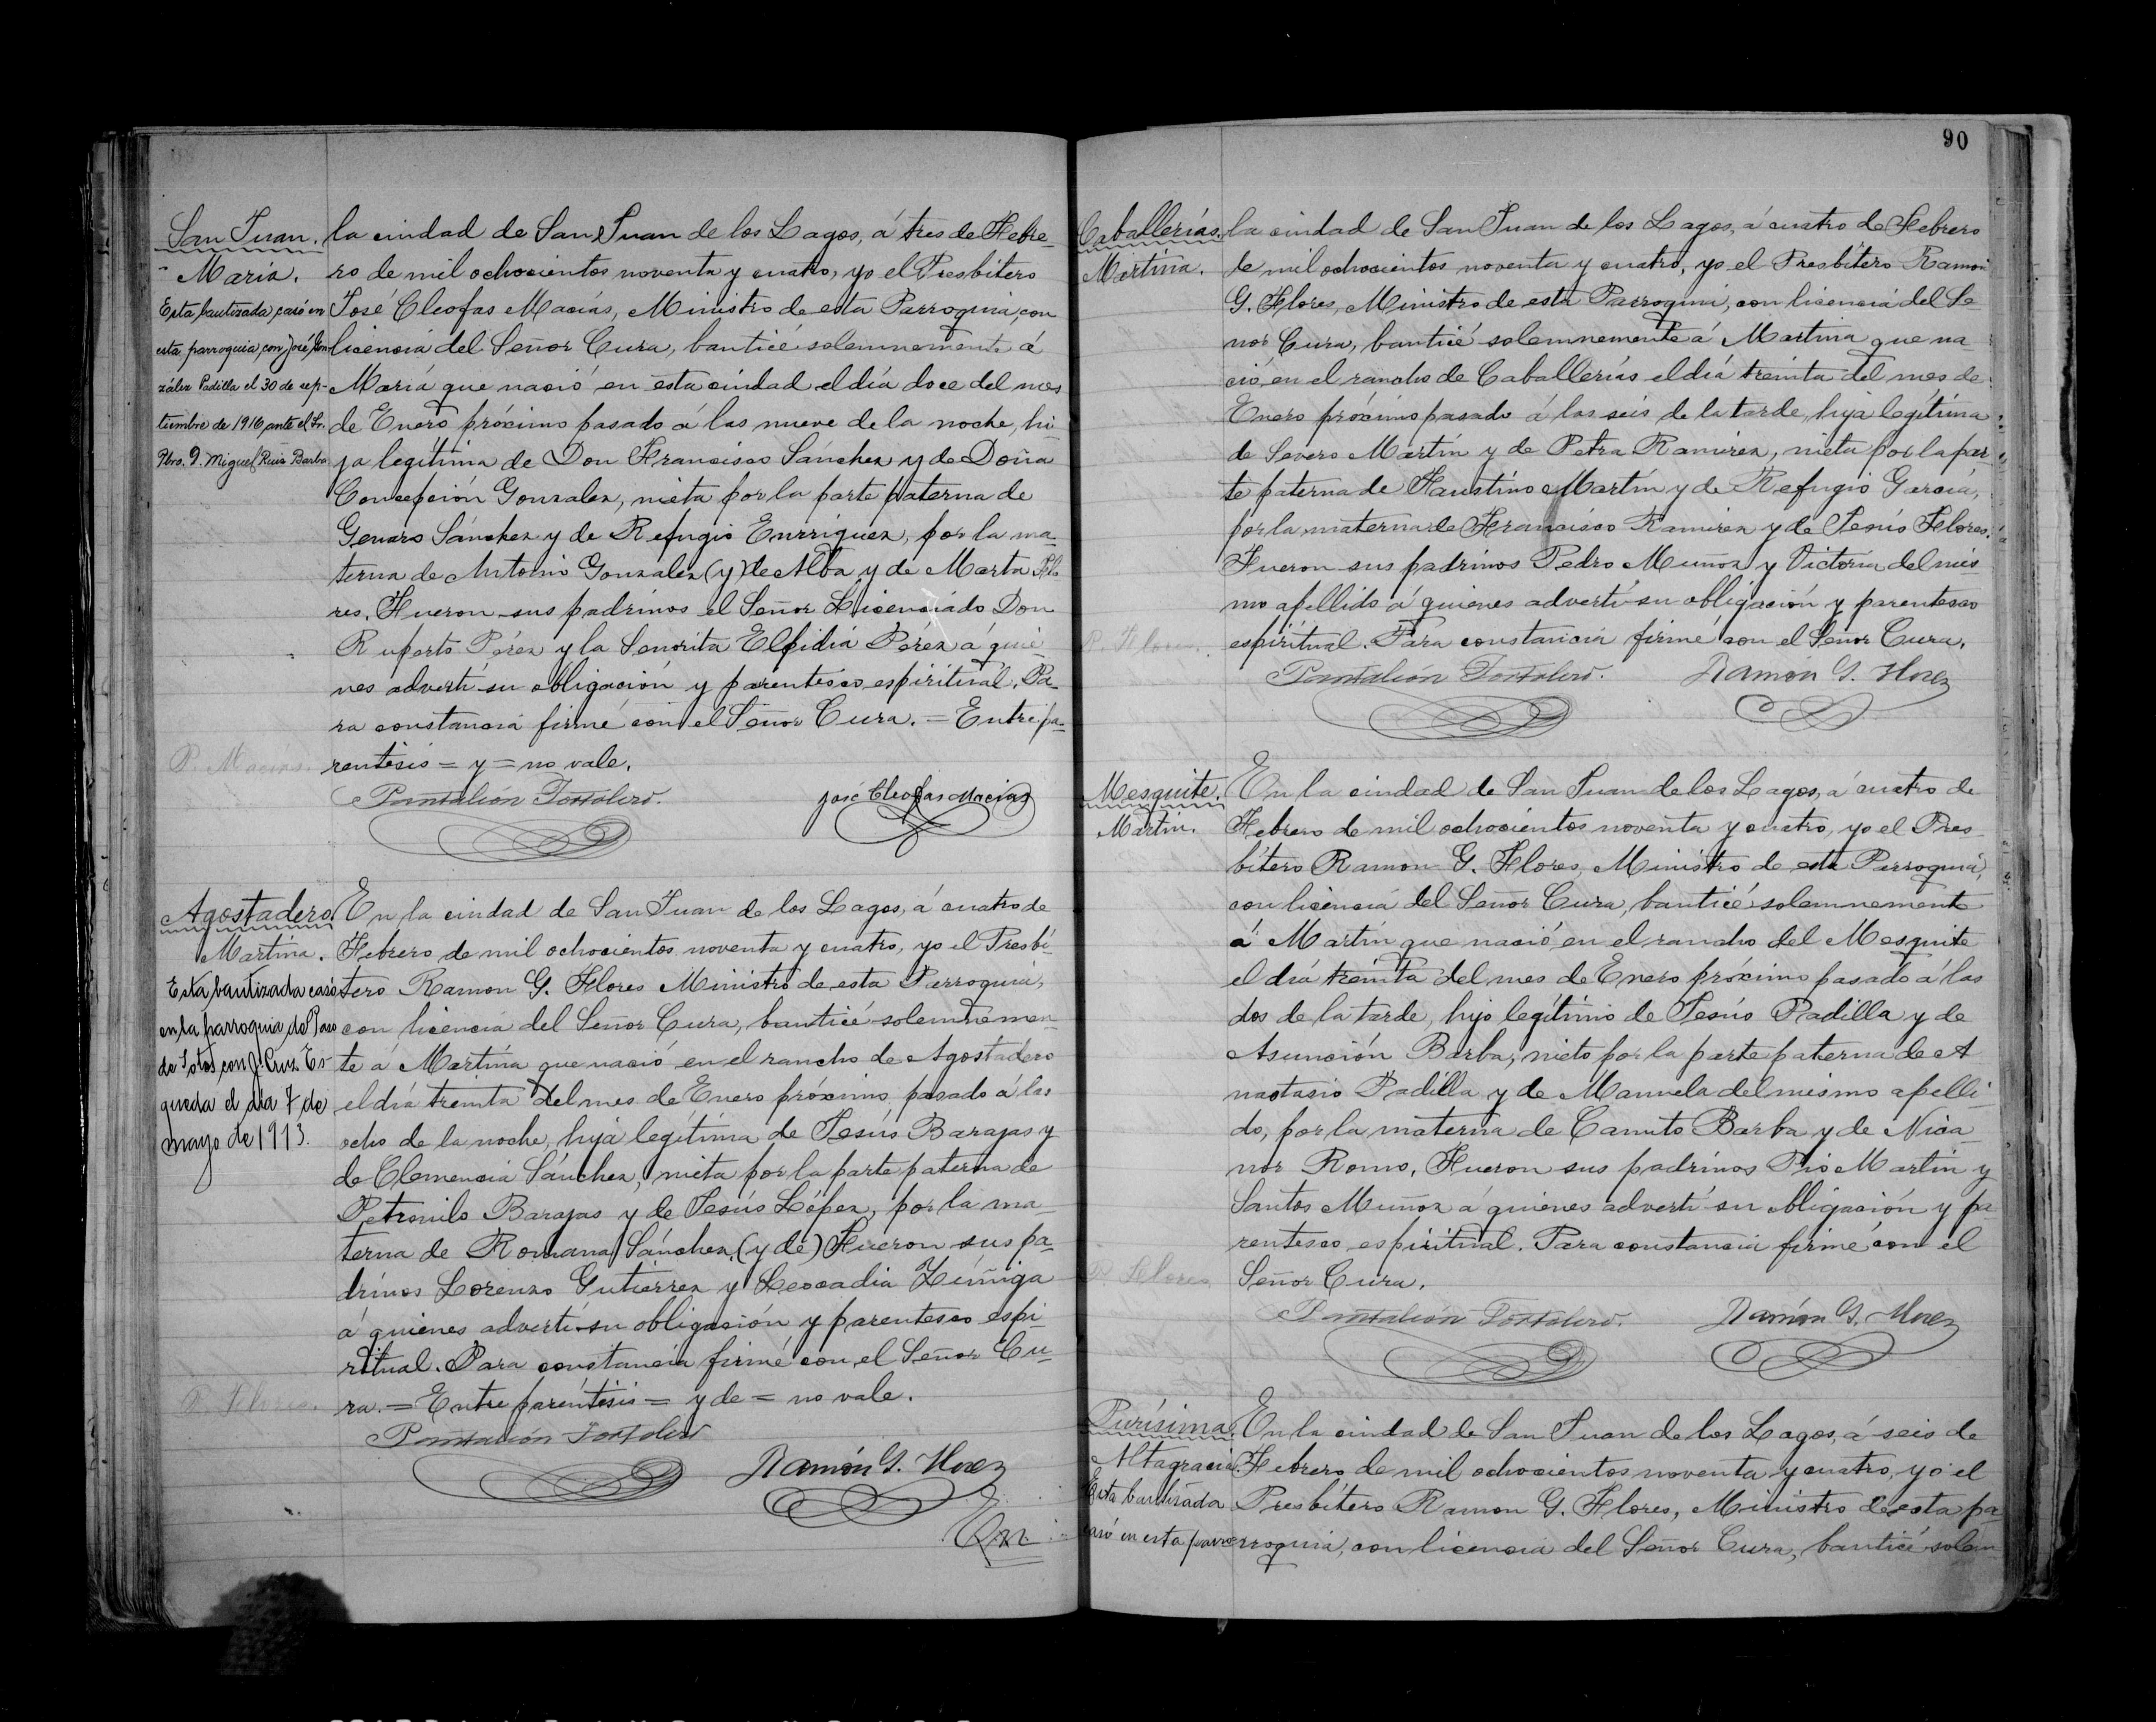 San Juan.
María.
Esta bautizada casó en
esta parroquia con José Gon
zález Padilla el 30 de sep-
tiembre de 1916 ante el Sr.
Pbro. D. Miguel Ruiz Barba
la ciudad de San Juan de los Lagos, á tres de Febre-
ro de mil ochocientos noventa y cuatro, yo el Presbítero
José Cleofas Macías, Ministro de esta Parroquia, con
licencia del Señor Cura, bauticé solemnemente á
María que nació en esta ciudad el día doce del mes
de Enero próximo pasado á las nueve de la noche, hi-
ja legítima de Don Francisco Sánchez y de Doña
Concepción Gonzalez, nieta por la parte paterna de
Genaro Sánchez y de Refugio Enrríquez, por la ma-
terna de Antonio Gonzalez (y) de Alba y de Marta Flo
res. Fueron sus padrinos el Señor Licenciado Don
Ruperto Pérez y la Señorita Elpidia Pérez á quie
nes advertí su obligación y parentesco espiritual. Pa-
ra constancia firmé con el Señor Cura. = Entre pa-
rentesis = y = no vale.
P. Macías.
Pantaleón Tortolero.
José Cleofas Macías
Agostadero.
Martina.
Esta bautizada casó
en la parroquia de Paso
de Sotos con J. Cruz Es-
queda el día 7 de
mayo de 1913.
En la ciudad de San Juan de los Lagos, á cuatro de
Febrero de mil ochocientos noventa y cuatro, yo el Presbí-
tero Ramon G. Flores Ministro de esta Parroquia,
con licencia del Señor Cura, bauticé solemnemen-
te á Martina que nació en el rancho de Agostadero
el día treinta del mes de Enero próximo pasado á las
ocho de la noche, hija legítima de Jesús Barajas y
de Clemencia Sánchez, nieta por la parte paterna de
Petronilo Barajas y de Jesús López, por la ma-
terna de Romana Sánchez, (y de) Fueron sus pa-
drinos Lorenzo Gutiérrez y Leocadia Zúñiga
á quienes advertí su obligación y parentesco espi-
ritual. Para constancia firmé con el Señor Cu-
ra. = Entre paréntisis = y de = no vale.
P. Flores.
Pantaleón Tortolero
Ramón G. Flores
En
90
Caballerías.
Martina.
la ciudad de San Juan de los Lagos, á cuatro de Febrero
de mil ochocientos noventa y cuatro, yo el Presbítero Ramon
G. Flores, Ministro de esta Parroquia, con licencia del Se
ñor Cura, bauticé solemnemente á Martina que na-
ció en el rancho de Caballerías el día treinta del mes de
Enero próximo pasado á las seis de la tarde, hija legítima
de Severo Martín y de Petra Ramirez, nieta por la par-
te paterna de Faustino Martín y de Refugio García,
por la materna de Francisco Ramirez y de Jesús Flores.
Fueron sus padrinos Pedro Muñoz y Victoria del mis-
mo apellido á quienes advertí su obligación y parentesco
espiritual. Para constancia firmé con el Señor Cura.
P. Flores.
Pantaleón Tortolero.
Ramón G. Flores
Mesquite.
Martin.
En la ciudad de San Juan de los Lagos, á cuatro de
Febrero de mil ochocientos noventa y cuatro, yo el Pres-
bítero Ramon G. Flores, Ministro de esta Parroquia,
con licencia del Señor Cura, bauticé solemnemente
á Martin que nació en el rancho del Mesquite
el día treinta del mes de Enero próximo pasado á las
dos de la tarde, hijo legítimo de Jesús Padilla y de
Asunción Barba, nieto por la parte paterna de A
nastasio Padilla y de Manuela del mismo apelli-
do, por la materna de Canuto Barba y de Nica-
nor Romo. Fueron sus padrinos Pio Martin y
Santos Muñoz á quienes advertí su obligación y pa-
rentesco espiritual. Para constancia firmé con el
Señor Cura.
P. Flores
Pantaleón Tortolero.
Ramón G. Flores
Purísima.
Altagracia.
Esta bautizada
casó en esta parro
En la ciudad de San Juan de los Lagos, á seis de
Febrero de mil ochocientos noventa y cuatro, yo el
Presbítero Ramon G. Flores, Ministro de esta pa-
rroquia, con licencia del Señor Cura, bauticé solem-